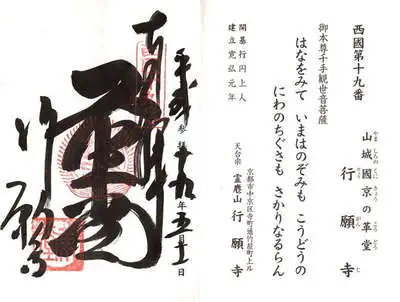 西國第十九番
山城國京の革堂
行願寺
御本尊千手観世音菩薩
はなをみて いまはのぞみも こうどうの
にわのちぐさも さかりなるらん
開基行円上人
建立寛弘元年
京都市中京区寺町通竹屋町上ル
天台宗 霊麀山 行願寺
平成十九年五月
参拝
行願寺